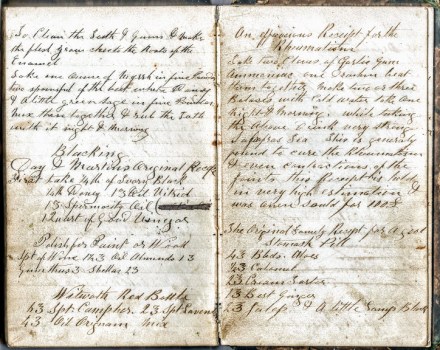 To Clean the Teeth & Gums & make
the flesh grow close to the Roots of the
Enamel
Take one ounce of Myrrh in fine Powder
two spoonful of the best white Honey
& a little green sage in fine Powder
Mix them together & rub the Teeth
with it night & morning
Blacking
Day & Martins Original Receipt
Take of Ivory Black
Honey Oil Vitriol
Spermacity Oil
1 Quart of Good Vinegar
Polish for Paint or Wood
Spt of Wine Oil Almonds
Gum Shellac
Red Bottle
Spt Camphor Spt Lavender
Oil Origanum Mix
An efficacious Receipt for the
Rheumatism
Take two of Garlic Gum
Ammoniac, one Drachm beat
them together make two or three
Bolusses with Cold water take one
night & morning. while taking
the above drink very strong
Tea. This is generally
found to cure the Rheumatism
& even contractions of the
Joints this Receipt is held
in very high estimation &
was sold for
The Original Family Receipt for a good
Stomach Pill
Aloes
Calomel
Cream Tartar
Best Ginger
Jalap & A little